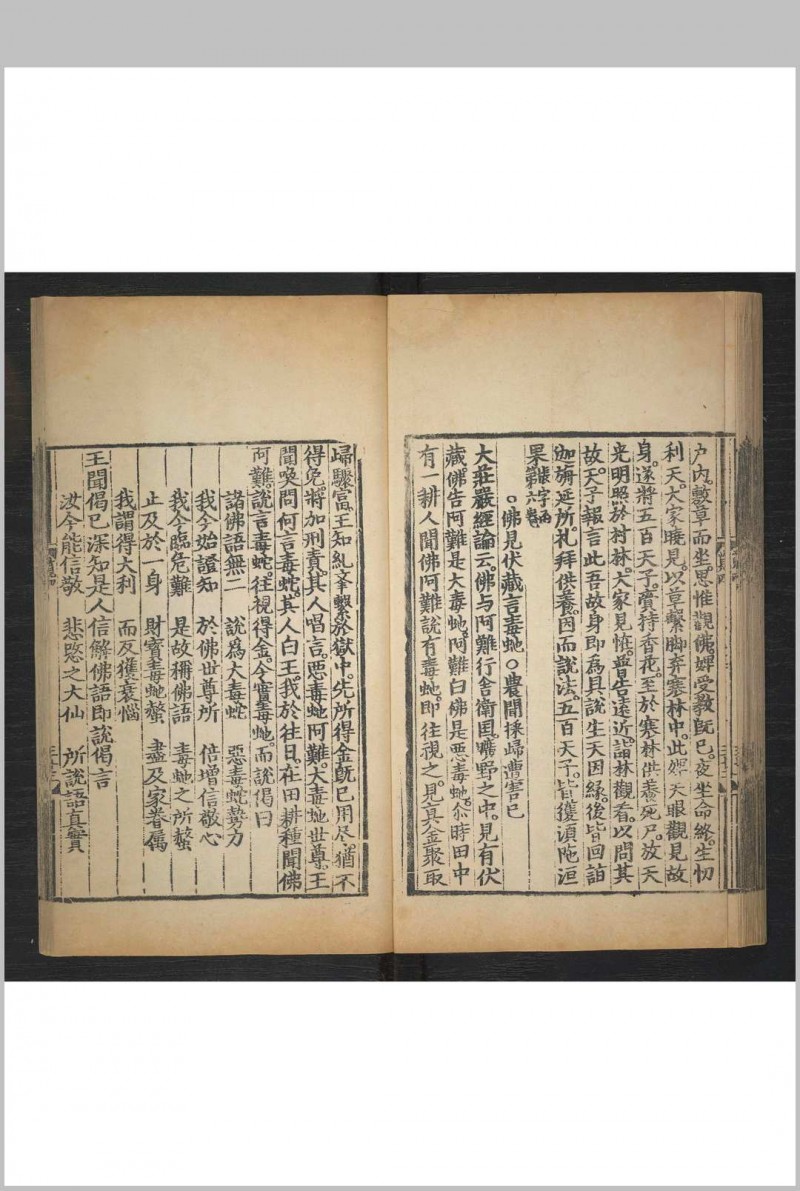 户内敷草而坐。思惟觀佛。婢受教既已。夜坐命終。生忉
利天。大家曉見。以草繫脚弃寒林中。此婢天眼觀見故
身。遂將五百天子。賷持香花。至於寒林供養死尸。放天
光明照於村林。大家見恠。普告遠近。詣林觀看。以問其
故。天子報言。此吾故身。即為具說生天因緣。後皆回詣
迦旃延所。礼拜供養。因而說法。五百天子。皆獲湏陁洹
果。
第六卷
○佛見伏藏言毒虵○農聞採歸遭害已
大莊嚴經論云。佛与阿難行舍衛国。曠野之中。見有伏
藏。佛告阿難是大毒虵。阿難白佛是惡毒虵。尒時田中
有一耕人。聞佛阿難說有毒虵。即往視之。見真金聚。取
歸驟富。王知糺筝繫於獄中。先所得金。既已用尽。猶不
得免。將加刑責。其人唱言。惡毒虵阿難。大毒虵世尊。王
聞喚問何言毒虵。其人白王。我於往日。在田耕種。聞佛
阿難。說言毒虵。往視得金。今實毒虵。而說偈曰
諸佛語無二　說為大毒虵　惡毒虵勢力
我今始證知　於佛世尊所　倍增信敬心
我今臨危難　是故稱佛語　毒虵之所螫
止及於一身　財寶毒虵螫　盡及家眷属
我謂得大利　而反獲衰惱
王聞偈已深知是人信解佛語即說偈言
汝今能信敬　悲愍之大仙　所說語真實